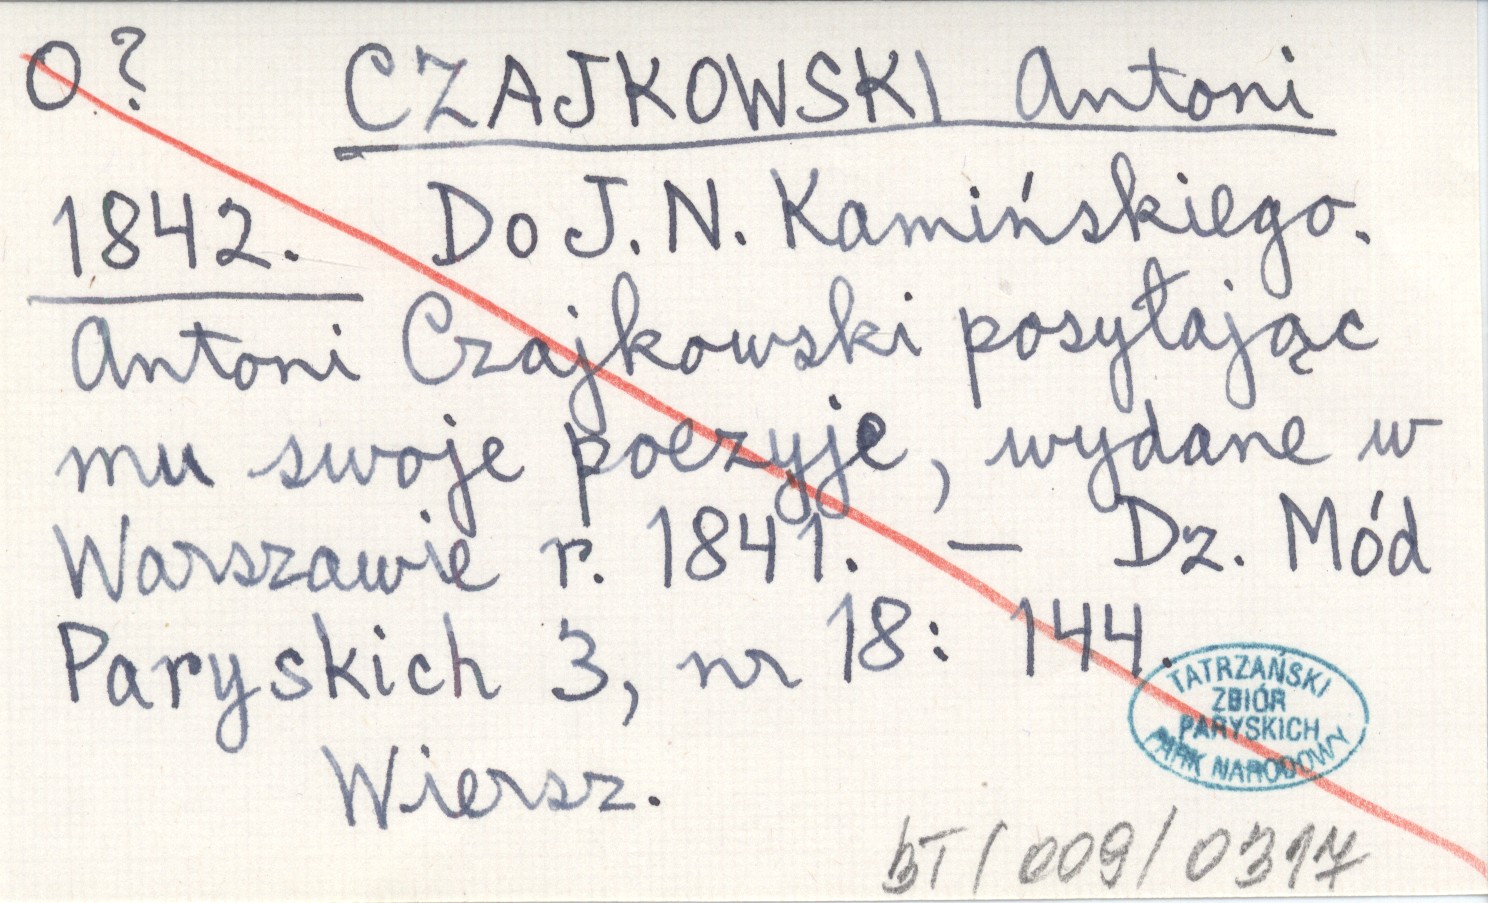 O? CZAJKOWSKI Antoni
1842. Do J. N. Kamińskiego.
Antoni Czajkowski posyłając
mu swoje poezyje, wydane w
Warszawie r. 1841. — Dz. Mód
Paryskich 3, nr 18: 144.
Wiersz.
TATRZAŃSKI
ZBIÓR
PARYSKICH
PARK NARODOWY
BT/009/0317